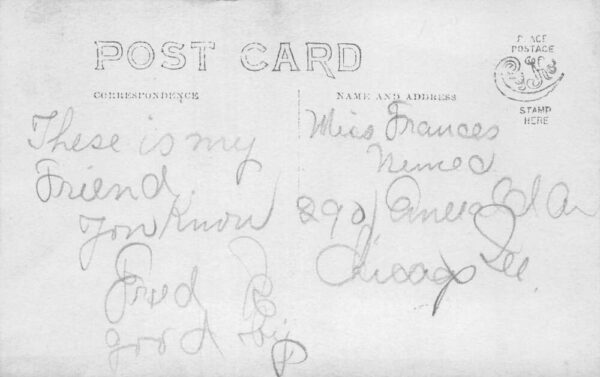 POST CARD
CORRESPONDENCE
NAME AND ADDRESS
PLACE
POSTAGE
STAMP
HERE
These is my
Friend.
You Know
Fred
good by
Miss Frances
Nemec
Chicago Ill.